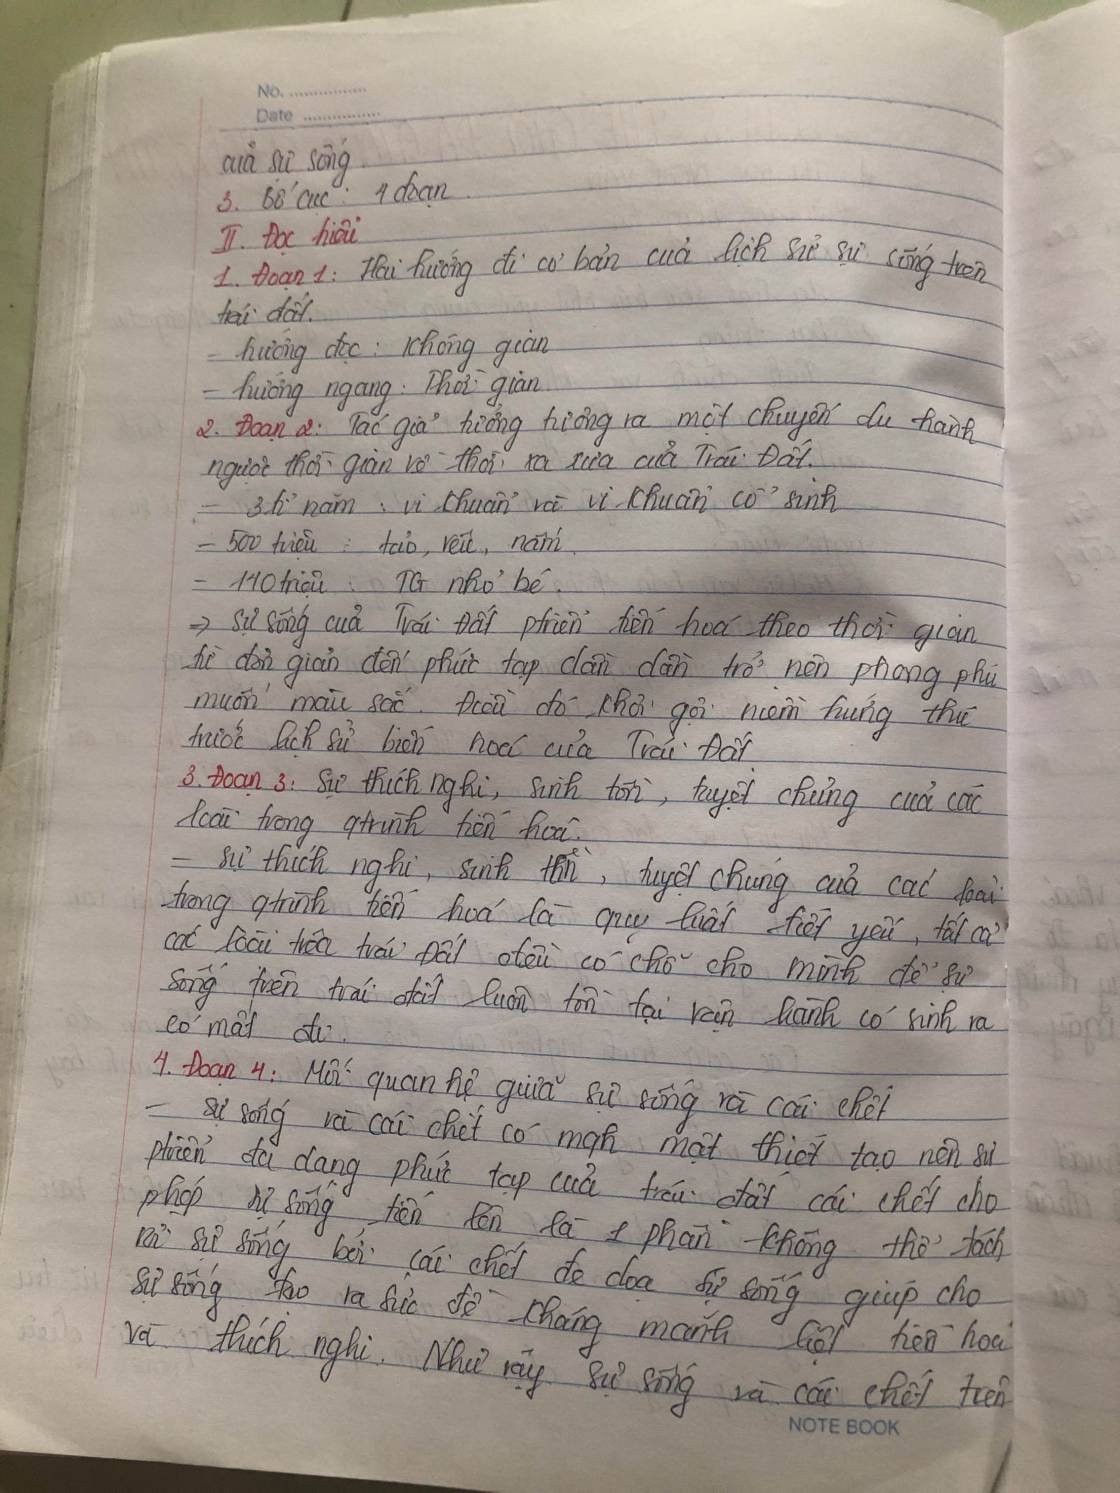 No. ................
Date ................
của sự sống
3. Bố cục : 4 đoạn
II. Đọc hiểu
1. Đoạn 1: Hai hướng đi cơ bản của lịch sử sự sống trên
trái đất.
- hướng dọc : Không gian
- hướng ngang : Thời gian
2. Đoạn 2: Tác giả tưởng tượng ra một chuyến du hành
ngược thời gian về thời xa xưa của Trái Đất.
- 3 tỉ năm : vi khuẩn và vi khuẩn cổ sinh
- 500 triệu : tảo, rêu, nấm
- 140 triệu : TG nhỏ bé.
=> sự sống của Trái Đất phiên tiến hoá theo thời gian
từ đơn giản đến phức tạp dần dần trở nên phong phú
muôn màu sắc. Điều đó khơi gợi niềm hứng thú
trước lịch sử biến hoá của Trái Đất
3. Đoạn 3: Sự thích nghi, sinh tồn, tuyệt chủng của các
loài trong qtrình tiến hoá.
- sự thích nghi, sinh tồn, tuyệt chủng của các loài
trong qtrình tiến hoá là quy luật tất yếu, tất cả
các loài trên trái Đất đều có chỗ cho mình để sự
sống trên trái đất luôn tồn tại vận hành có sinh ra
có mất đi.
4. Đoạn 4: Mối quan hệ giữa sự sống và cái chết
- sự sống và cái chết có mqh mật thiết tạo nên sự
phiên đa dạng phức tạp của trái đất cái chết cho
phép sự sống tiến lên là 1 phần không thể tách
rời sự sống bởi cái chết đe doạ sự sống giúp cho
sự sống tạo ra sức đề kháng mạnh liệt tiến hoá
và thích nghi. Như vậy sự sống và cái chết trên
NOTE BOOK